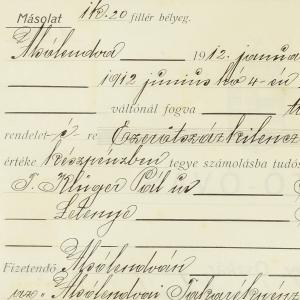 Másolat ik. 20 fillér bélyeg.
Alsólendva 1912. január
1912 junius hó 4-én
váltónál fogva
rendelet-é re Ezerötszázkilencz
értéke készpénzben tegye számolásba tudós
T. Klüger Pál úr
Letenye
Fizetendő Alsólendván
Alsólendvai Takarékpénz